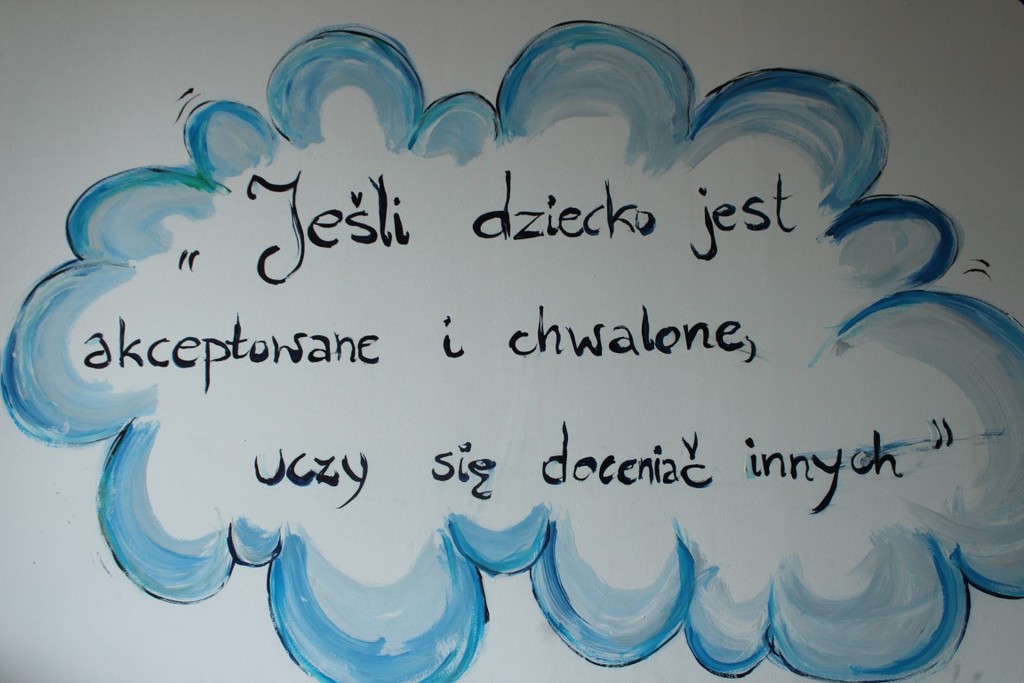 „Jeśli dziecko jest
akceptowane i chwalone,
uczy się doceniać innych”